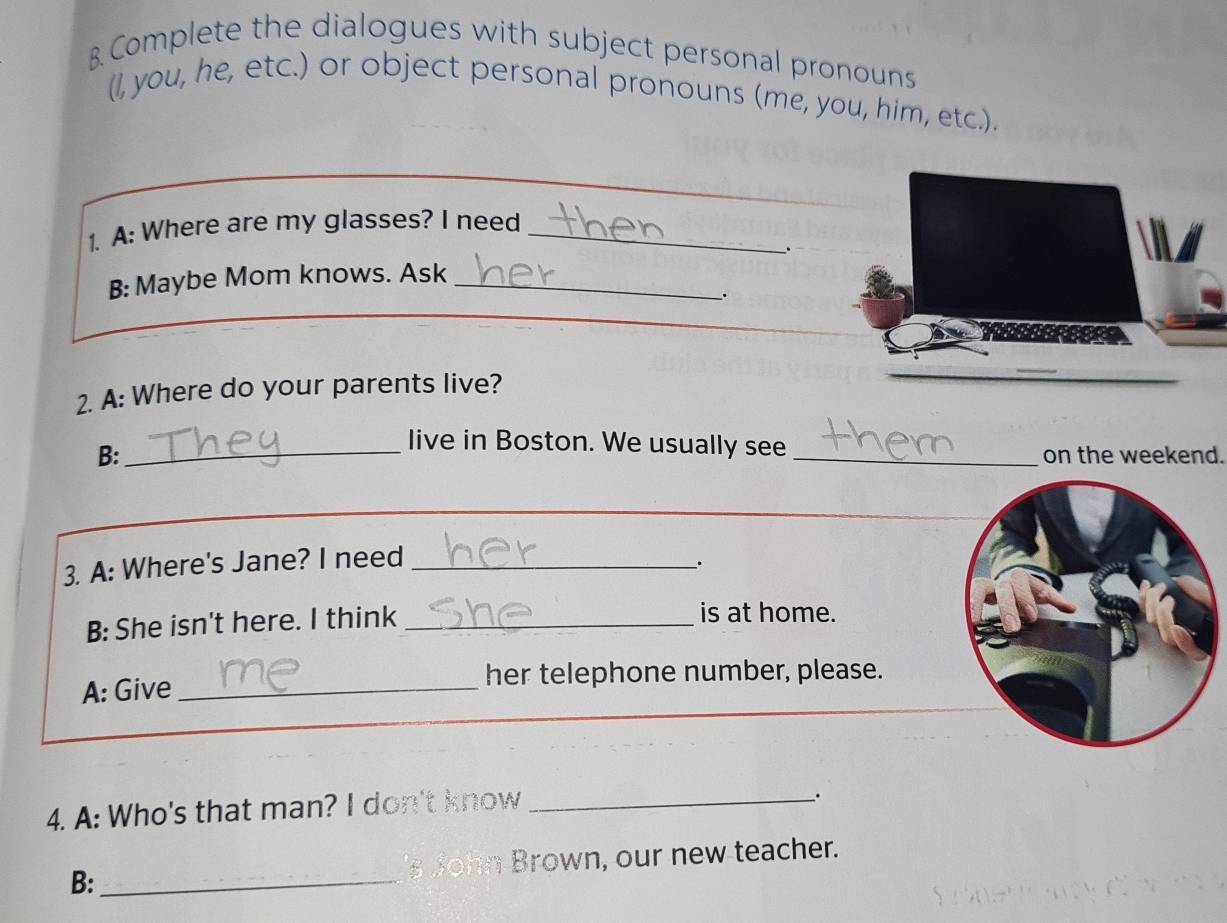 B. Complete the dialogues with subject personal pronouns
(I, you, he, etc.) or object personal pronouns (me, you, him, etc.).
1. A: Where are my glasses? I need then.
B: Maybe Mom knows. Ask her.
2. A: Where do your parents live?
B: They live in Boston. We usually see them on the weekend.
3. A: Where's Jane? I need her.
B: She isn't here. I think She is at home.
A: Give me her telephone number, please.
4. A: Who's that man? I don't know ____________.
B: ____________'s John Brown, our new teacher.